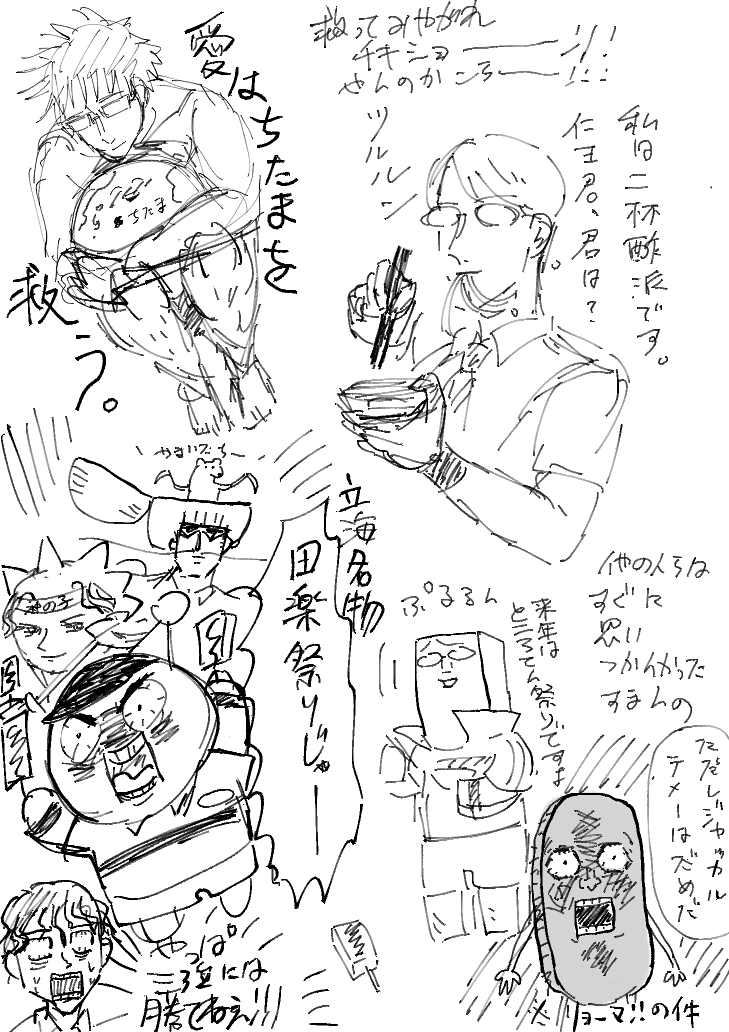 愛はちたまを
救う。
ちたま
救ってみやがれ
チキショーーーッ!!
やんのかンろーーー!!
ツルルン
私は二杯酢派です。
仁王君、君は?
立海名物
田楽祭りじゃーー
ぷるるん
来年は
ところてん祭りですよ
他の人らは
すぐに
思い
つかんかった
すまんの
ただしジャッカル
テメーはだめだ
やっぱ
三強には
勝てねえ!!!
※リョーマ!!の件